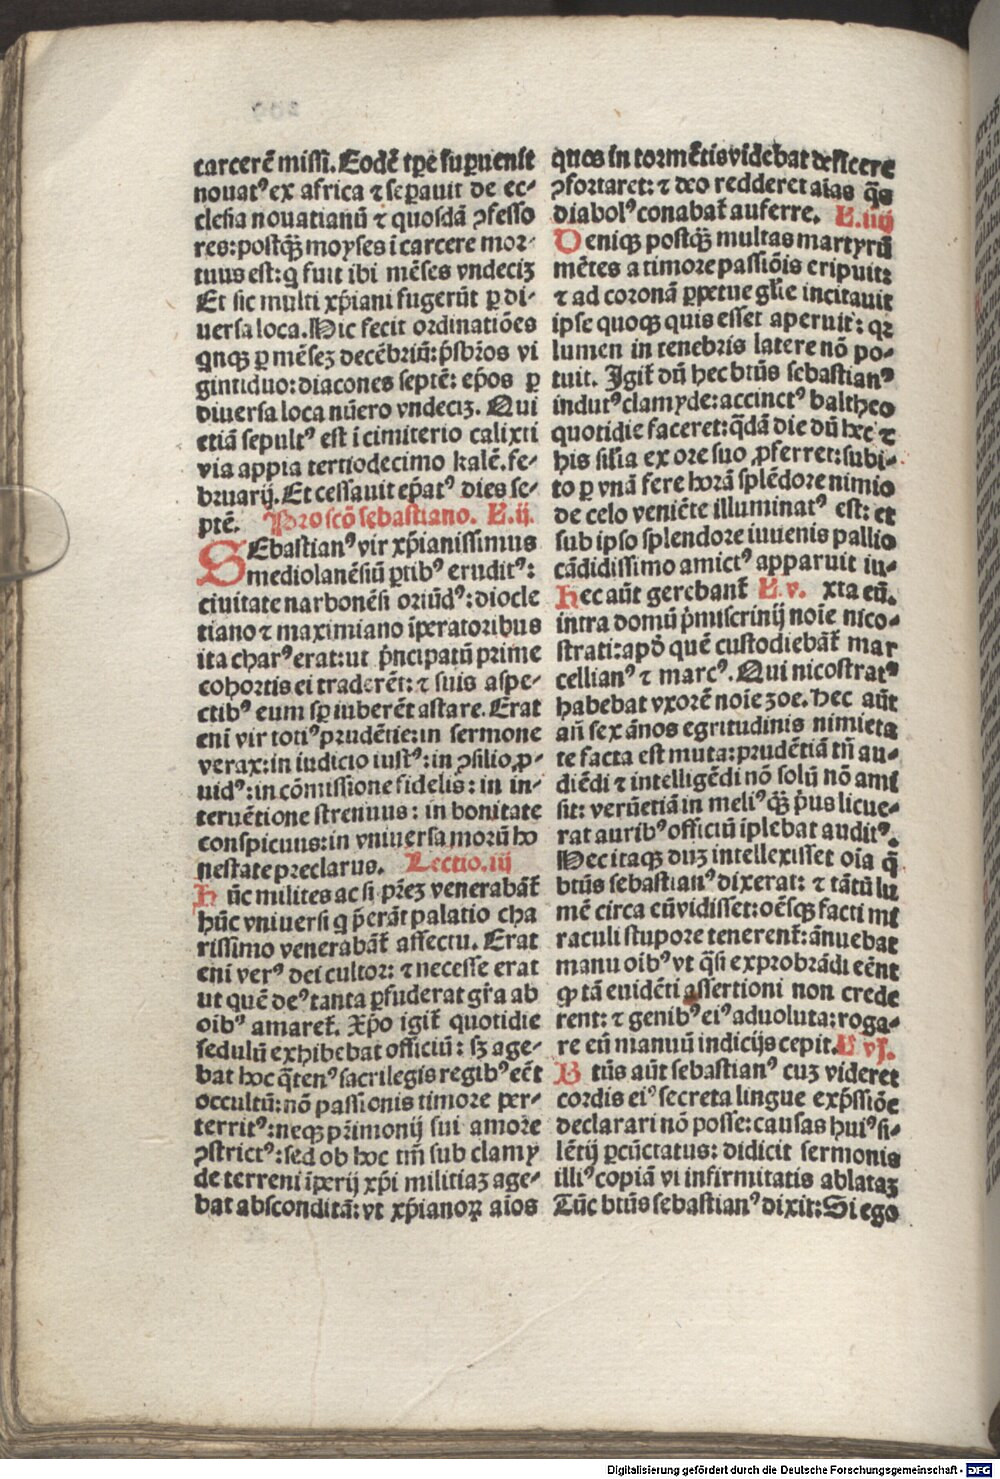 carcerē missi. Eodē tꝑe suꝑuenit
nouatꝰ ex africa ⁊ seꝑauit de ec-
clesia nouatianū ⁊ quosdā ꝯfesso
res: postꝙ̄ moyses ī carcere mor-
tuus est: q fuit ibi mēses vndeciꝫ
Et sic multi xp̄iani fugerūt ꝑ di-
uersa loca. Hic fecit ordinatiōes
qnqꝫ ꝑ mēseꝫ decēbriū: p̄sbr̄os vi
gintiduo: diacones septē: ep̄os ꝑ
diuersa loca nūero vndeciꝫ. Qui
etiā sepultꝰ est ī cimiterio calixti
via appia tertiodecimo kalē. fe-
bruarij. Et cessauit ep̄atꝰ dies se-
ptē. Pro scō sebastiano. L.ij.
SEbastianꝰ vir xp̄ianissimus
mediolanēsiū ꝑtibꝰ eruditꝰ:
ciuitate narbonēsi oriūdꝰ: diocle
tiano ⁊ maximiano īperatoribus
ita charꝰ erat: ut p̄ncipatū prime
cohortis ei traderēt: ⁊ suis aspe-
ctibꝰ eum sꝑ iuberēt astare. Erat
eni vir totiꝰ prudētie: in sermone
verax: in iudicio iustꝰ: in ꝯsilio ꝓ-
uidꝰ: in cōmissione fidelis: in in-
teruētione strenuus: in bonitate
conspicuus: in vniuersa morū ho
nestate preclarus. Lectio.iij
Hūc milites ac si pr̄eꝫ venerabāt᷑
hūc vniuersi q p̄erāt palatio cha
rissimo venerabāt᷑ affectu. Erat
eni verꝰ dei cultor: ⁊ necesse erat
ut quē deꝰ tanta ꝑfuderat gr̄a ab
oibꝰ amaret᷑. Xp̄o igit᷑ quotidie
sedulū exhibebat officiū: sꝫ age-
bat hoc q̄tenꝰ sacrilegis regibꝰ eēt
occultū: nō passionis timore per-
territꝰ: neqꝫ pr̄imonij sui amore
ꝯstrictꝰ: sed ob hoc tm̄ sub clamy
de terreni īperij xp̄i militiaꝫ age-
bat absconditā: vt xp̄ianoꝝ aīos
quos in tormētis videbat deficere
ꝯfortaret: ⁊ deo redderet aīas q̄s
diabolꝰ conabat᷑ auferre. L.iiij
Deniqꝫ postꝙ̄ multas martyrū
mētes a timore passiōis eripuit:
⁊ ad coronā ꝑpetue glīe incitauit
ipse quoqꝫ quis esset aperuit: qꝛ
lumen in tenebris latere nō po-
tuit. Igit᷑ dū hec btūs sebastianꝰ
indutꝰ clamyde: accinctꝰ baltheo
quotidie faceret: q̄dā die dū hec ⁊
his silia ex ore suo ꝓferret: subi-
to ꝑ vnā fere horā splēdore nimio
de celo veniēte illuminatꝰ est: et
sub ipso splendore iuuenis pallio
cādidissimo amictꝰ apparuit iu-
Hec aūt gerebant᷑ L.v. xta eū.
intra domū p̄miscrinij noīe nico-
strati: apō quē custodiebāt᷑ mar
cellianꝰ ⁊ marcꝰ. Qui nicostratꝰ
habebat vxorē noīe zoe. Hec aūt
an̄ sex ānos egritudinis nimieta
te facta est muta: prudētiā tn̄ au-
diēdi ⁊ intelligēdi nō solū nō ami
sit: verūetiā in meliꝰ ꝙ̄ p̄us licue-
rat auribꝰ officiū īplebat auditꝰ.
Hec itaqꝫ duꝫ intellexisset oīa q̄
btūs sebastianꝰ dixerat: ⁊ tātū lu
mē circa eū vidisset: oēsqꝫ facti mi
raculi stupore tenerent᷑: ānuebat
manu oībꝰ vt q̄si exprobrādi eēnt
ꝙ tā euidēti assertioni non crede
rent: ⁊ genibꝰ eiꝰ aduoluta: roga-
re eū manuū indicijs cepit. L vj.
Btūs aūt sebastianꝰ cuꝫ videret
cordis eiꝰ secreta lingue exp̄ssiōe
declarari nō posse: causas huiꝰ si-
lētij ꝑcūctatus: didicit sermonis
illiꝰ copiā vi infirmitatis ablataꝫ
Tūc btūs sebastianꝰ dixit: Si ego
Digitalisierung gefördert durch die Deutsche Forschungsgemeinschaft - DFG